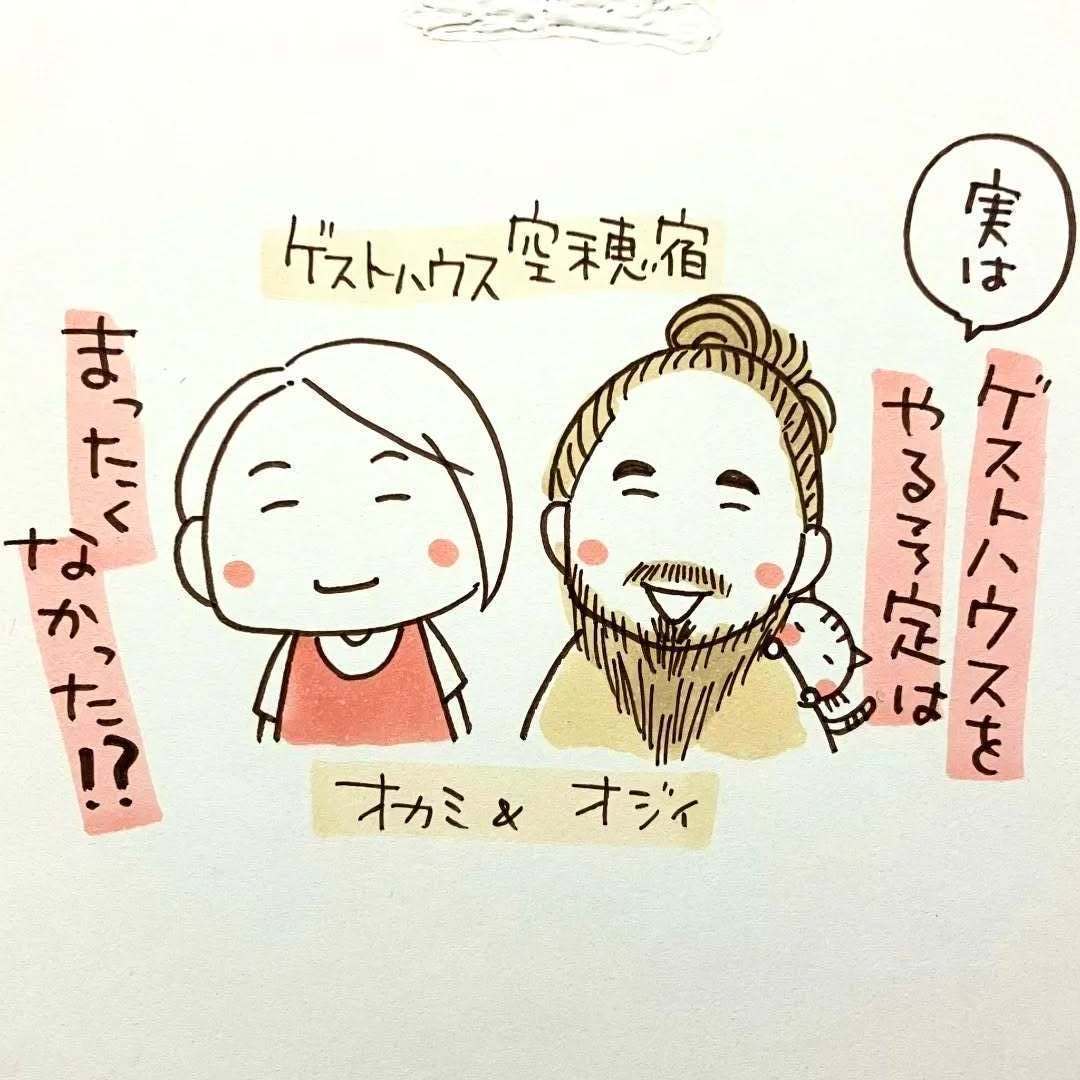 実は
ゲストハウスを
やる予定は
まったく
なかった!?
ゲストハウス空穂宿
オカミ & オジィ